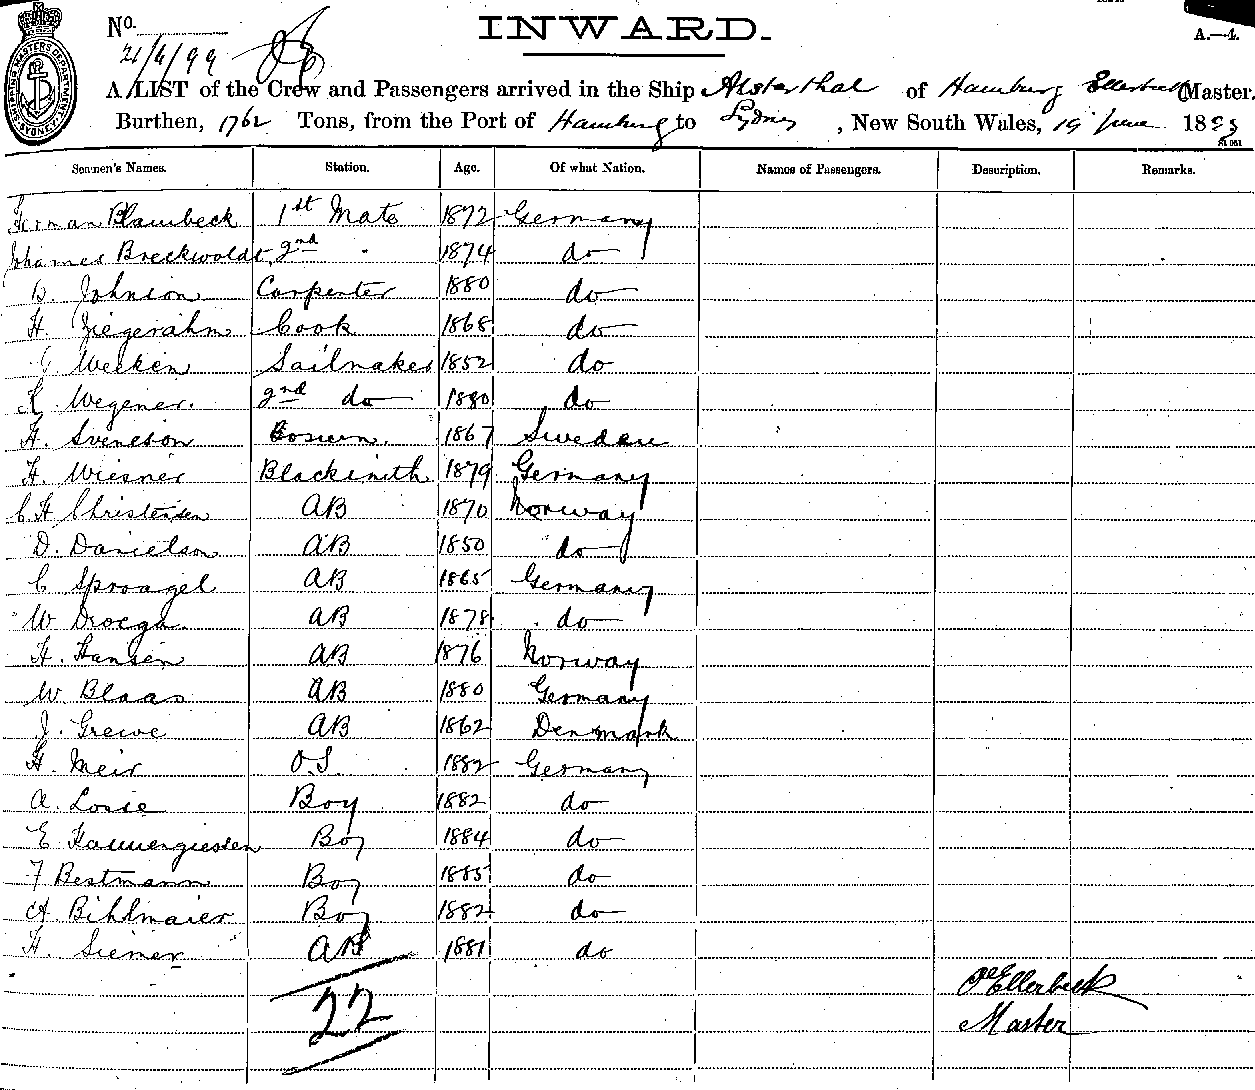 INWARD.
A.—4.
No.
21/6/99
SHIPPING MASTERS DEPARTMENT SYDNEY
A LIST of the Crew and Passengers arrived in the Ship Alsterthal of Hamburg Ellerbeck Master.
Burthen, 1762 Tons, from the Port of Hamburg to Sydney, New South Wales, 19 June 1899
Seamen's Names. Station. Age. Of what Nation. Names of Passengers. Description. Remarks.
Herman Blambeck 1st Mate 1872 Germany
Johannes Breckwoldt 2nd " 1874 do
B. Johnson Carpenter 1880 do
H. Ziegerahm Cook 1868 do
Wecken Sailmaker 1852 do
K. Wegener. 2nd do 1880 do
H. Svenebon Bosun. 1867 Sweden
H. Wiesner Blacksmith 1879 Germany
C H Christensen AB 1870 Norway
D. Danielson AB 1850 do
C Sproagel AB 1865 Germany
W Droege. AB 1878 do
H. Hansen AB 1876 Norway
W. Blaas AB 1880 Germany
J. Grewe AB 1862 Denmark
H. Meir O.S. 1882 Germany
A. Losie Boy 1882 do
E Boy 1884 do
F Bestmann Boy 1885 do
A Bihlmaier Boy 1882 do
H. Siemer AB 1881 do
22
Ellerbeck
Master